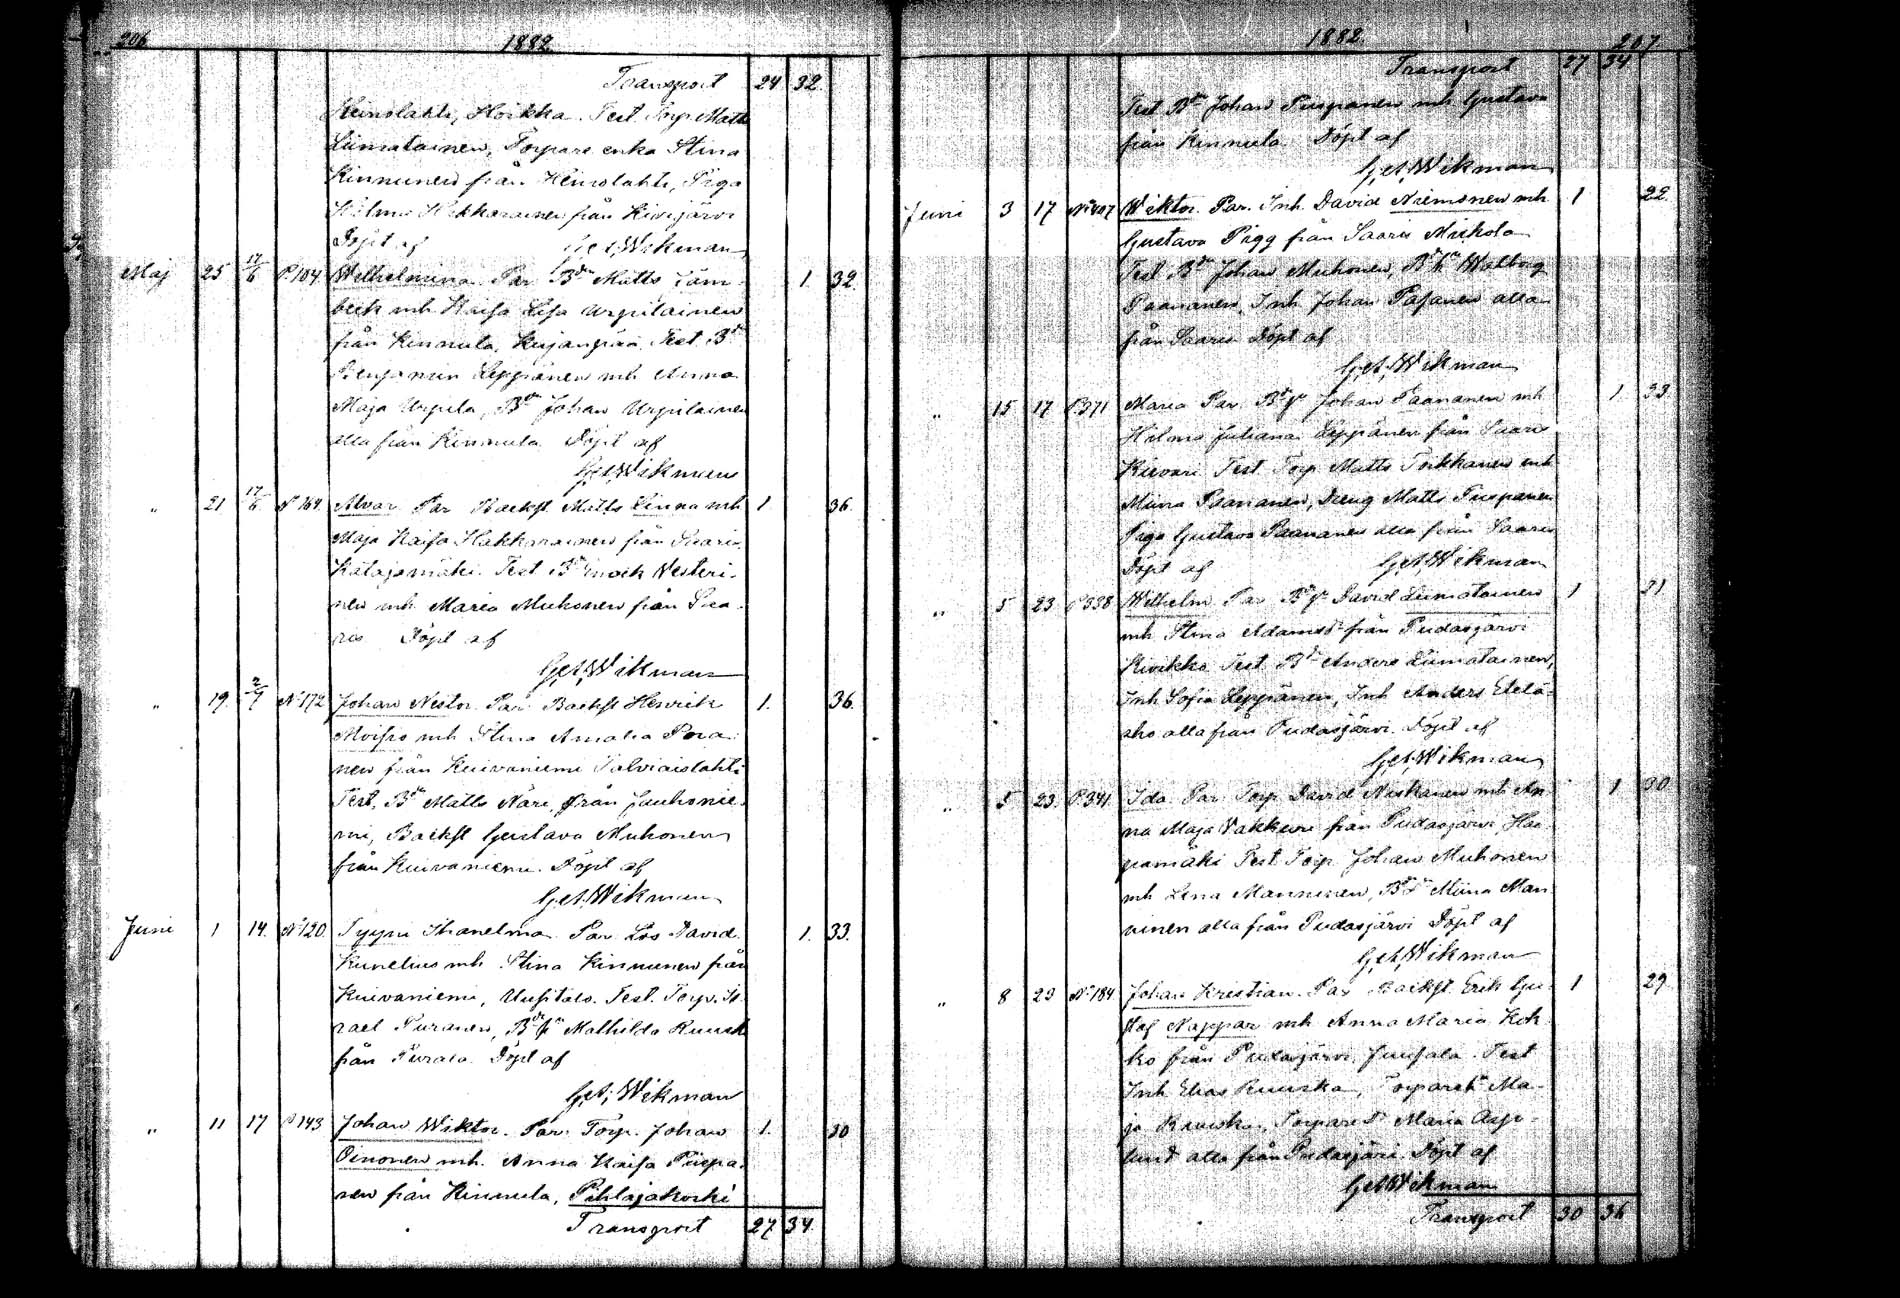 206
1882
Transport 24 32
Heinolahti, Hoikka. Test. Torp. Matts
Liimatainen, Torpare enka Stina
Kinnunen från Heinolahti, Piga
Hilma Hakkarainen från Kivijärvi
Döpt af G.A. Wikman
Maj 25 17/6 P.104 Wilhelmina. Par. Bdn Matts Läm- 1. 32.
beck mh. Kaisa Lisa Urpilainen
från Kinnula, Kujanpää. Test. Bdn
Benjamin Leppänen mh. Anna
Maja Urpila, Bdn Johan Urpilainen
alla från Kinnula Döpt af
G.A. Wikman
" 21 17/6 N 164. Alvar. Par. Backst. Matts Linna mh. 1 36.
Maja Kaisa Hakkarainen från Saaris,
Katajamäki. Test. Bdn Enok Vesteri-
nen mh. Maria Muhonen från Saa-
ris Döpt af
G.A. Wikman
" 19. 2/7 N 172 Johan Nestor. Par. Backst. Henrik 1. 36.
Moisio mh. Stina Amalia Pura-
nen från Kuivaniemi Talviaislahti
Test. Bdn Matts Näre från Jauhonie-
mi, Backst. Gustava Muhonen
från Kuivaniemi. Döpt af
G.A. Wikman
Juni 1 14. N 120. Tyyni Ihanelma. Par. Lös. David 1. 33.
Kunelius mh. Stina Kinnunen från
Kuivaniemi, Uusitalo. Test. Torp. Is-
rael Puranen, Bdr Mathilda Ruuska
från Purala. Döpt af
G.A. Wikman
" 11 17 P 143 Johan Wiktor. Par. Torp. Johan 1. 30
Oinonen mh. Anna Kaisa Piispa-
nen från Kinnula, Pihlajakoski
Transport 27 34.
1882.
207
Transport 27 34
Test. Bdn Johan Piispanen mh. Gustava
från Kinnula. Döpt af
G.A. Wikman
Juni 3 17 N 407 Wiktor. Par. Inh. David Niemonen mh. 1 22.
Gustava Pigg från Saaris Mickola
Test. Bdn Johan Muhonen, Bdh Walborg
Paananen, Inh. Johan Pasanen alla
från Saaris Döpt af
G.A. Wikman
" 15 17 P 371 Maria. Par. Bdr Johan Paananen mh. 1 33.
Hilma Juliana Leppänen från Saaris
Kievari. Test. Torp. Matts Tarkkanen mh.
Miina Paananen, Dreng Matts Piispanen
Piga Gustava Paananen alla från Saaris
Döpt af G.A. Wikman
" 5 23 P 338 Wilhelm. Par. Bdr David Liimatainen 1 31
mh. Stina Adamsdr från Pudasjärvi
Kivikko Test. Bdn Anders Liimatainen,
Inh. Sofia Leppänen, Inh. Anders Etelä-
aho alla från Pudasjärvi. Döpt af
G.A. Wikman
" 5 23. P 341 Ida. Par. Torp. David Niskanen mh. An- 1 30
na Maja Vakkuri från Pudasjärvi, Haa-
pamäki Test. Torp. Johan Muhonen
mh. Lena Manninen, Bdr Miina Man-
ninen alla från Pudasjärvi Döpt af
G.A. Wikman
" 8 23 N 184 Johan Kristian. Par. Backst. Erik Gu- 1 29.
staf Nappar mh. Anna Maria Kok-
ko från Pudasjärvi, Juusala. Test
Inh. Elias Ruuska, Torpareh Ma-
ja Ruuska, Torpared Maria Asp-
lund alla från Pudasjärvi. Döpt af
G.A. Wikman
Transport 30 36